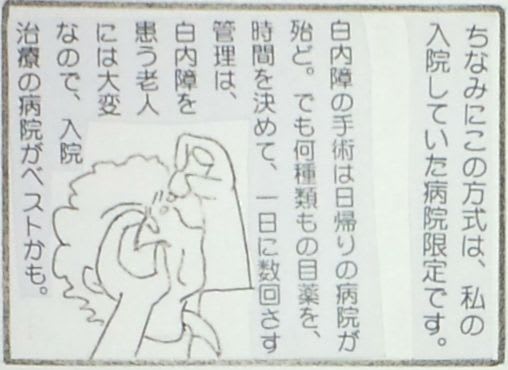 ちなみにこの方式は、私の
入院していた病院限定です。
白内障の手術は日帰りの病院が
殆ど。でも何種類もの目薬を、
時間を決めて、一日に数回さす
管理は、
白内障を
患う老人
には大変
なので、入院
治療の病院がベストかも。